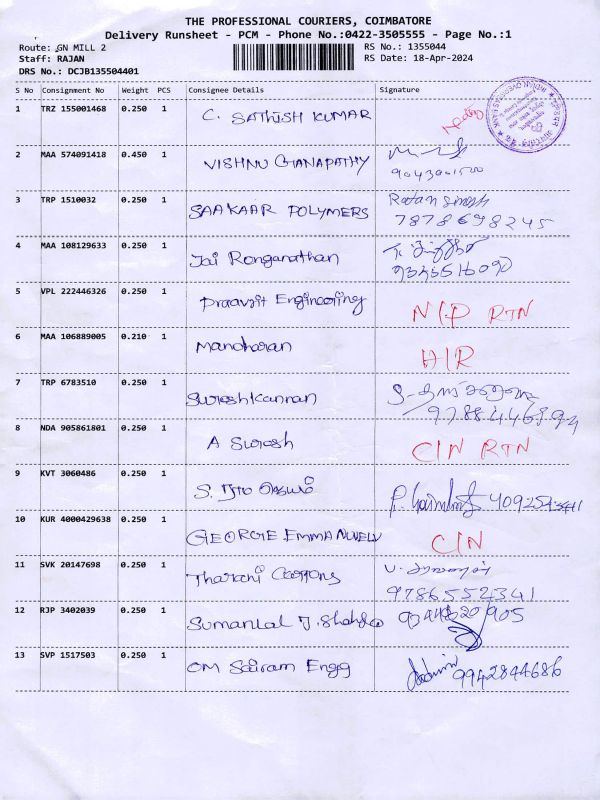 THE PROFESSIONAL COURIERS, COIMBATORE
Delivery Runsheet - PCM - Phone No.:0422-3505555 - Page No.:1
Route: GN MILL 2 RS No.: 1355044
Staff: RAJAN RS Date: 18-Apr-2024
DRS No.: DCJB135504401
S No Consignment No Weight PCS Consignee Details Signature
1 TRZ 155001468 0.250 1 C. SATHISH KUMAR
2 MAA 574091418 0.450 1 VISHNU GANAPATHY
3 TRP 1510032 0.250 1 SAAKAAR POLYMERS Ratan Singh
7878698245
4 MAA 108129633 0.250 1 Jai Ronganathan
5 VPL 222446326 0.250 1 Engineering N/P RTN
6 MAA 106889005 0.210 1 Manoharan H/R
7 TRP 6783510 0.250 1 Sureshkannan
8 NDA 905861801 0.250 1 A Suresh C/N RTN
9 KVT 3060486 0.250 1
10 KUR 4000429638 0.250 1 GEORGE EMMANUVELV C/N
11 SVK 20147698 0.250 1 Tharani
9786552341
12 RJP 3402039 0.250 1 Sumanlal J.
13 SVP 1517503 0.250 1 OM Sairam Engg 9942844686